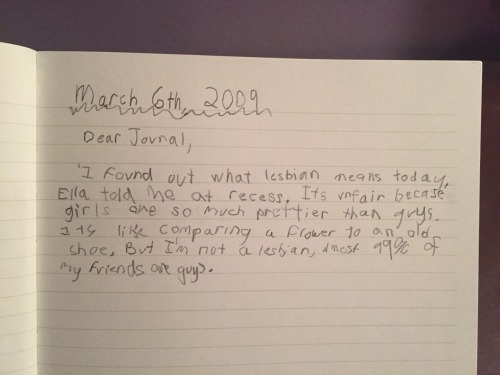 March 6th, 2009
Dear Journal,
I found out what lesbian means today.
Ella told me at recess. Its unfair becase
girls are so much prettier than guys.
Its like comparing a flower to an old
shoe. But I'm not a lesbian, almost 99% of
my friends are guys.